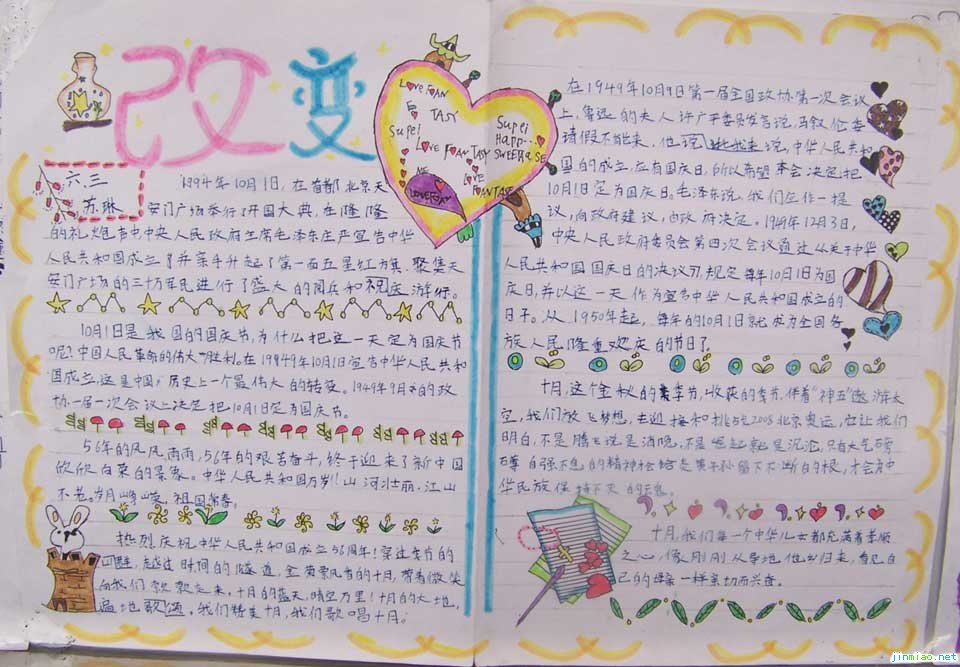 改变
LOVE FOAN
TASY
Supei
LOVE FOANTASY
Supei
Happ...
SWEETHA SE
LOVE
FOANTASY
LOVEFOAN
六.三
苏琳
1994年10月1日,在首都北京天
安门广场举行了开国大典,在隆隆
的礼炮声中中央人民政府主席毛泽东庄严宣告中华
人民共和国成立了并亲手升起了第一面五星红旗。聚集天
安门广场的三十万军民进行了盛大的阅兵和祝庆游行。
10月1日是我国的国庆节,为什么把这一天定为国庆节
呢?中国人民革命的伟大胜利。在19949年10月1日宣告中华人民共和
国成立,这是中国历史上一个最伟大的转变。1949年9月的政
协一届一次会议上决定把10月1日定为国庆节。
56年的风风雨雨,56年的艰苦奋斗,终于迎来了新中国
欣欣白荣的景象。中华人民共和国万岁!山河壮丽,江山
不老。岁月峥嵘,祖国常春。
热烈庆祝中华人民共和国成立56周年!穿过岁月的
回眸,越过时间的隧道,金菊飘香的十月,带着微笑
向我们款款走来,十月的蓝天,晴空万里!十月的大地,
遍地歌颂,我们精美十月,我们歌唱十月。
在1949年10月9日第一届全国政协第一次会议
上,鲁迅的夫人许广平委员发言说,马叙伦委
请假不能来,他说 说,中华人民共和
国的成立,应有国庆日,所以希望本会决定把
10月1日定为国庆日。毛泽东说,我们应作一提
议,向政府建议,由政府决定。1949年12月3日,
中央人民政府委员会第四次会议通过《关于中华
人民共和国国庆日的决议》,规定每年10月1日为国
庆日,并以这一天作为宣告中华人民共和国成立的
日子。从1950年起,每年的10月1日就成为全国各
族人民隆重欢庆的节日了。
十月,这个金秋的季节,收获的季节,伴着“神五”遨游太
空,我们放飞梦想,去迎接和挑战2008北京奥运,它让我们
明白,不是腾飞说是消晚,不是崛起就是沉沦,只有大气磅
礴自强不息的精神 子孙留下不断的根,才会有中
华民族保持不灭的
十月,我们每一个中华儿女都充满着孝顺
之心,像刚刚从异地他乡归来,看见自
己的母亲一样亲切而兴奋。
jinmiao.net